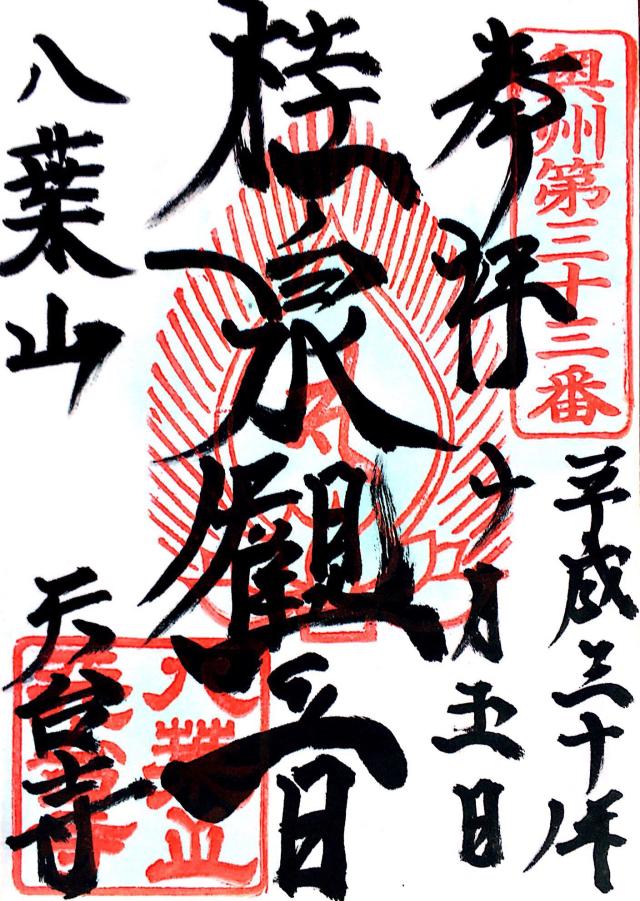 奥州第三十三番
奉拝
平成三十年
十月五日
桂泉觀音
八葉山
天台寺
八葉山
天台寺